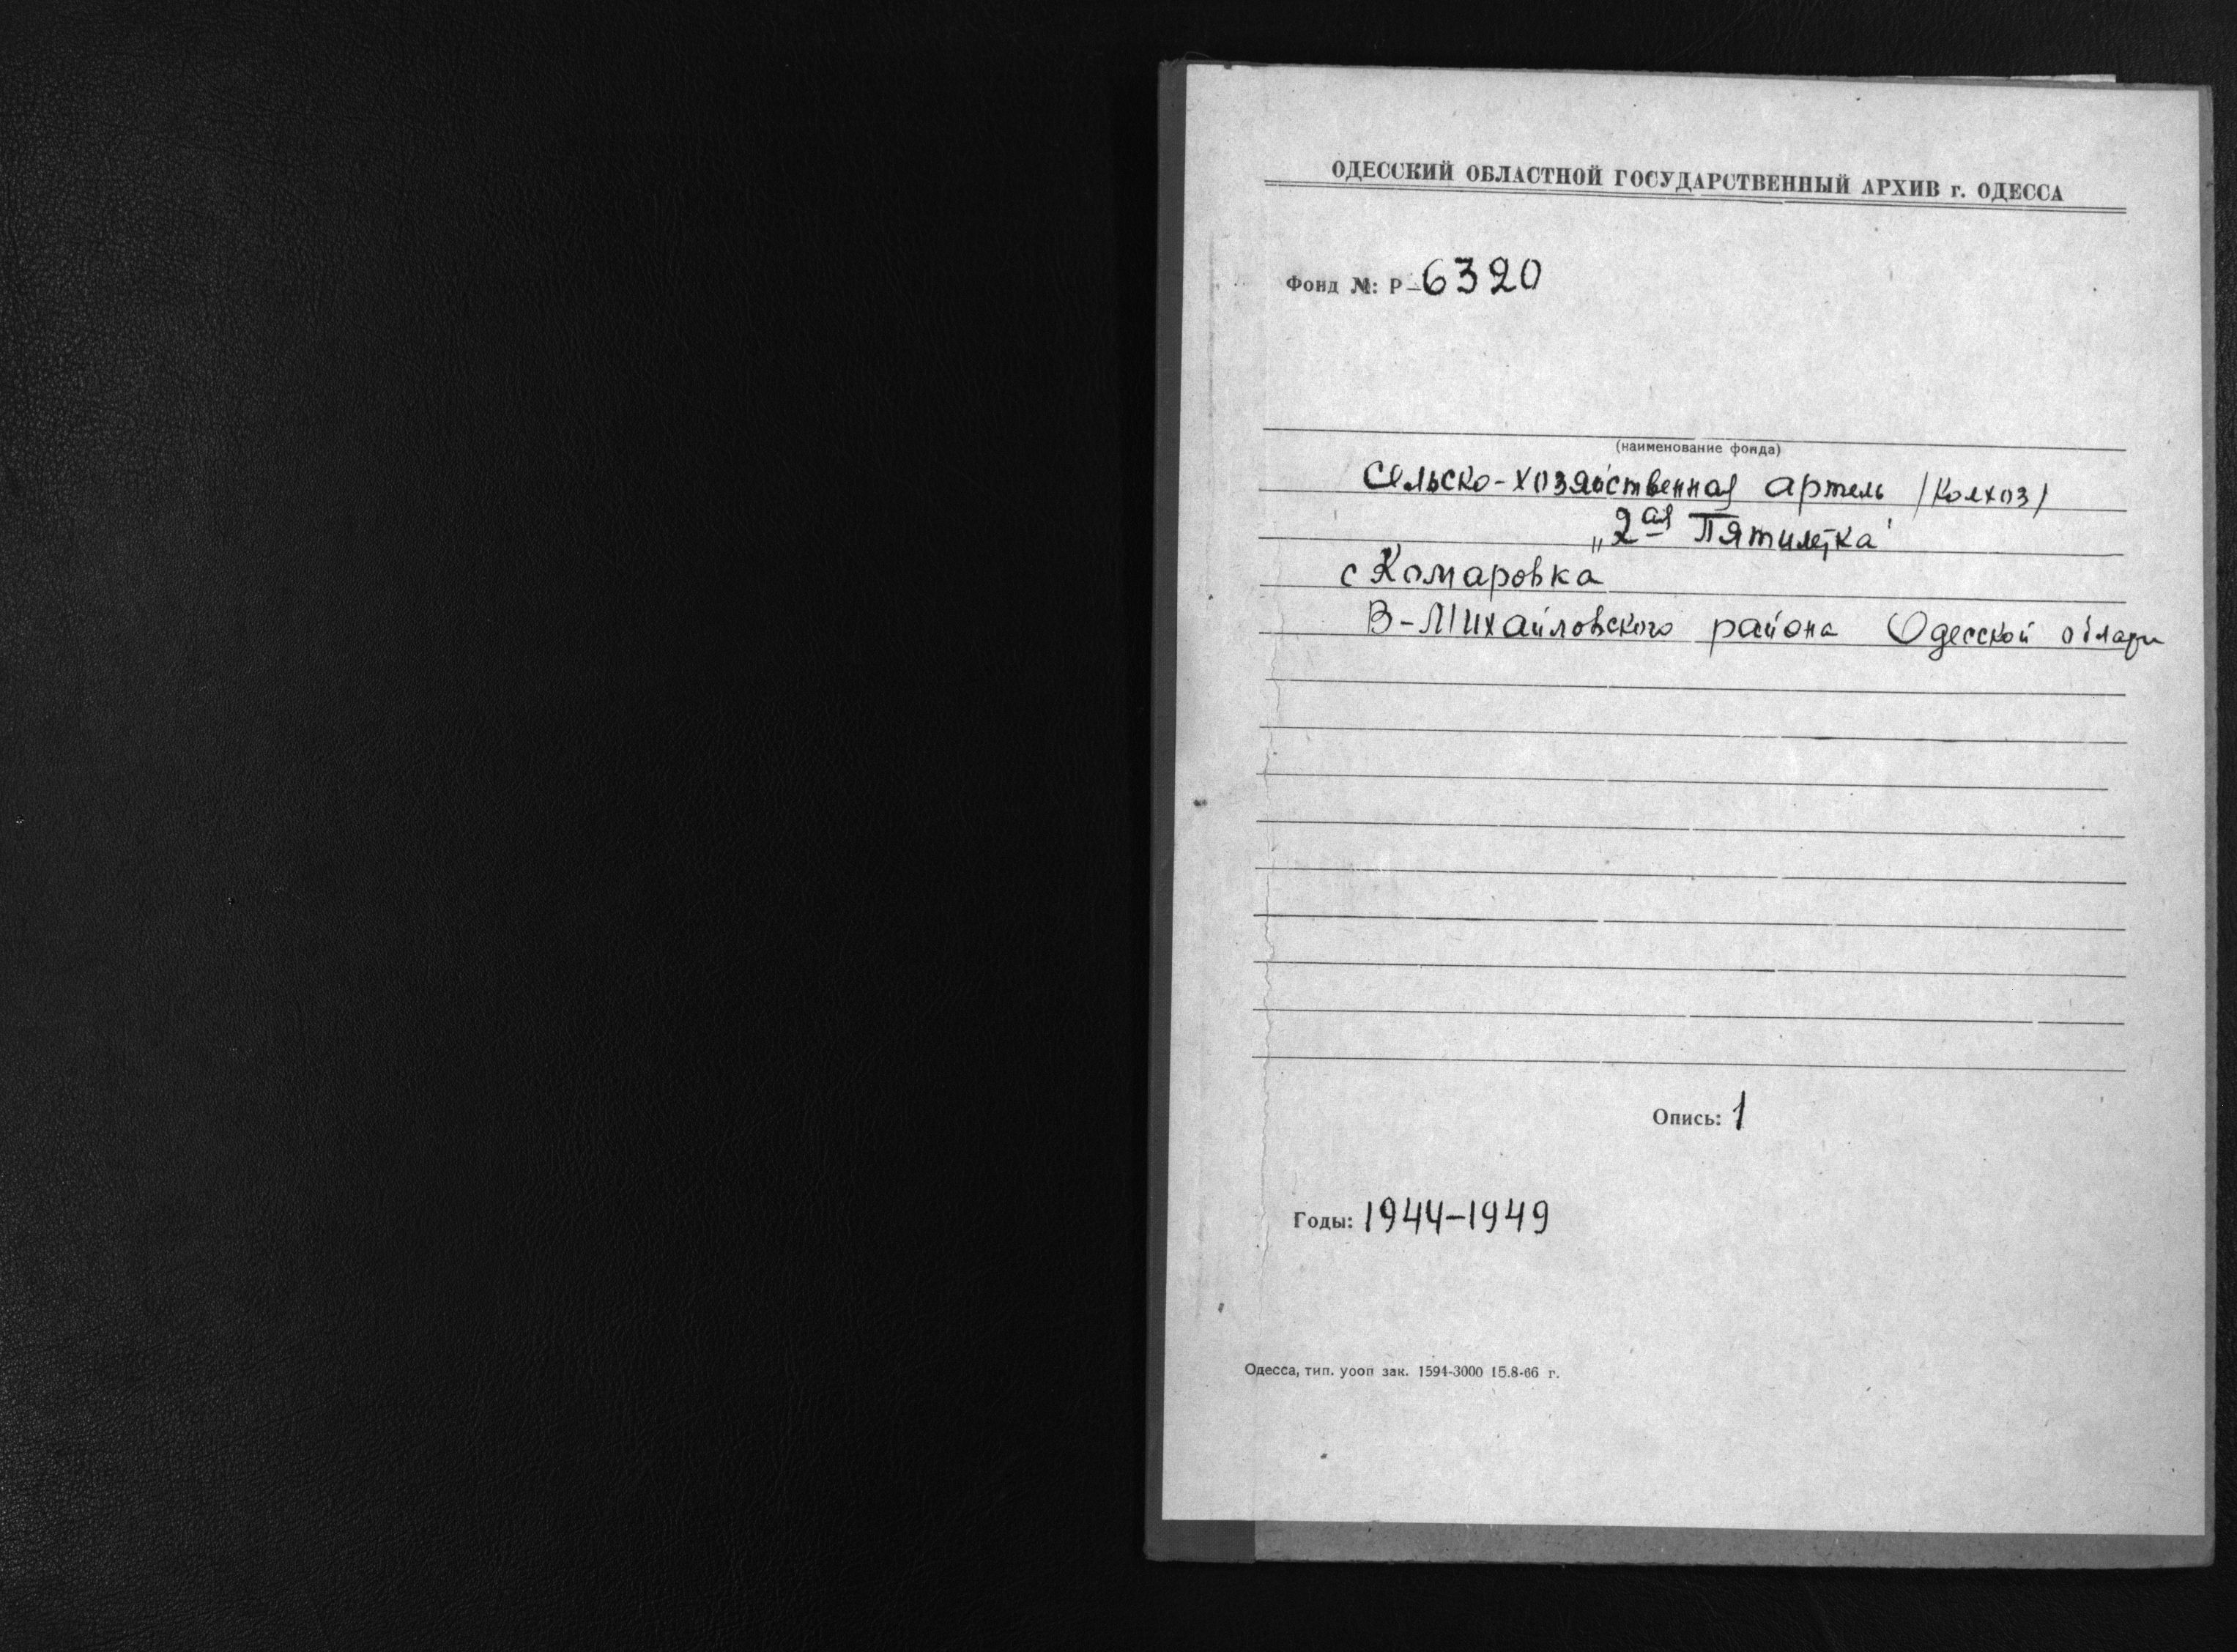 ОДЕССКИЙ ОБЛАСТНОЙ ГОСУДАРСТВЕННЫЙ АРХИВ г. ОДЕССА
Фонд №: Р-6320
(наименование фонда)
Сельско-хозяйственная артель /колхоз/
„2ая Пятилетка"
с Комаровка
В-Михайловского района Одесской
Опись: 1
Годы: 1944-1949
Одесса, тип. уооп зак. 1594-3000 15.8-66 г.